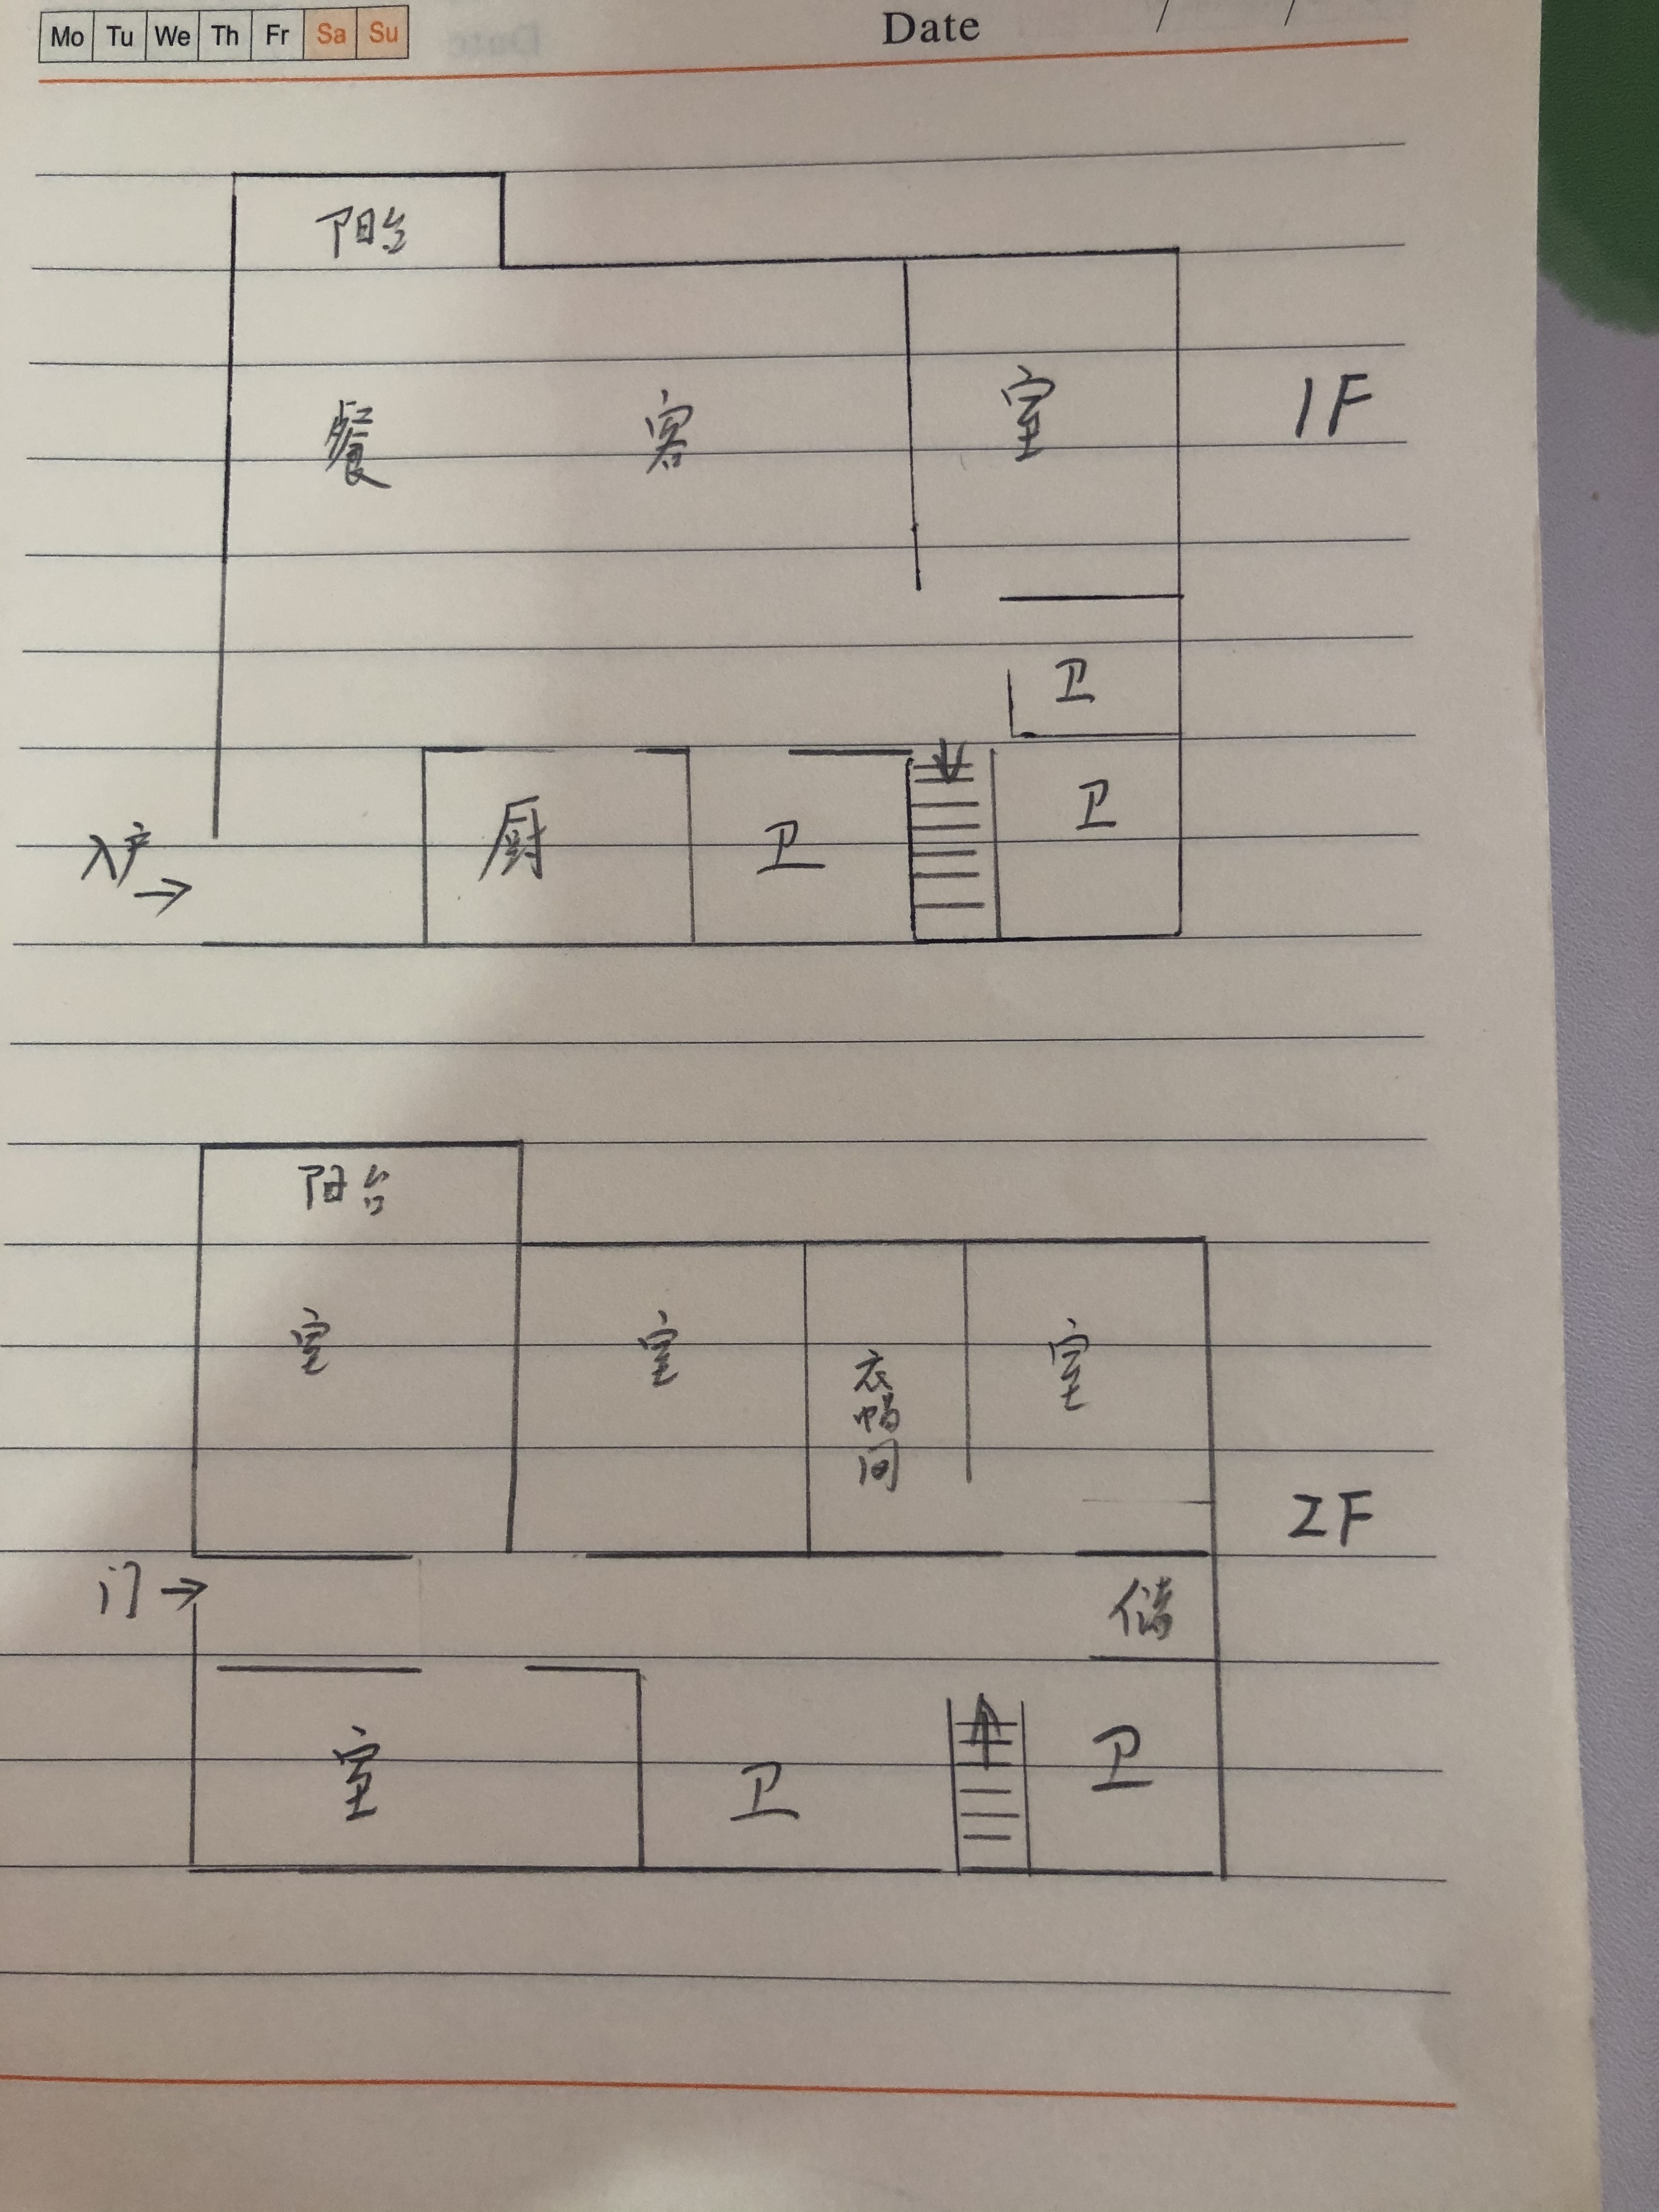 Mo Tu We Th Fr Sa Su
Date / /
阳台
餐 客 室
1F
卫
厨 卫 卫
入户→
阳台
室 室 衣帽间 室
2F
门→
储
室 卫 卫